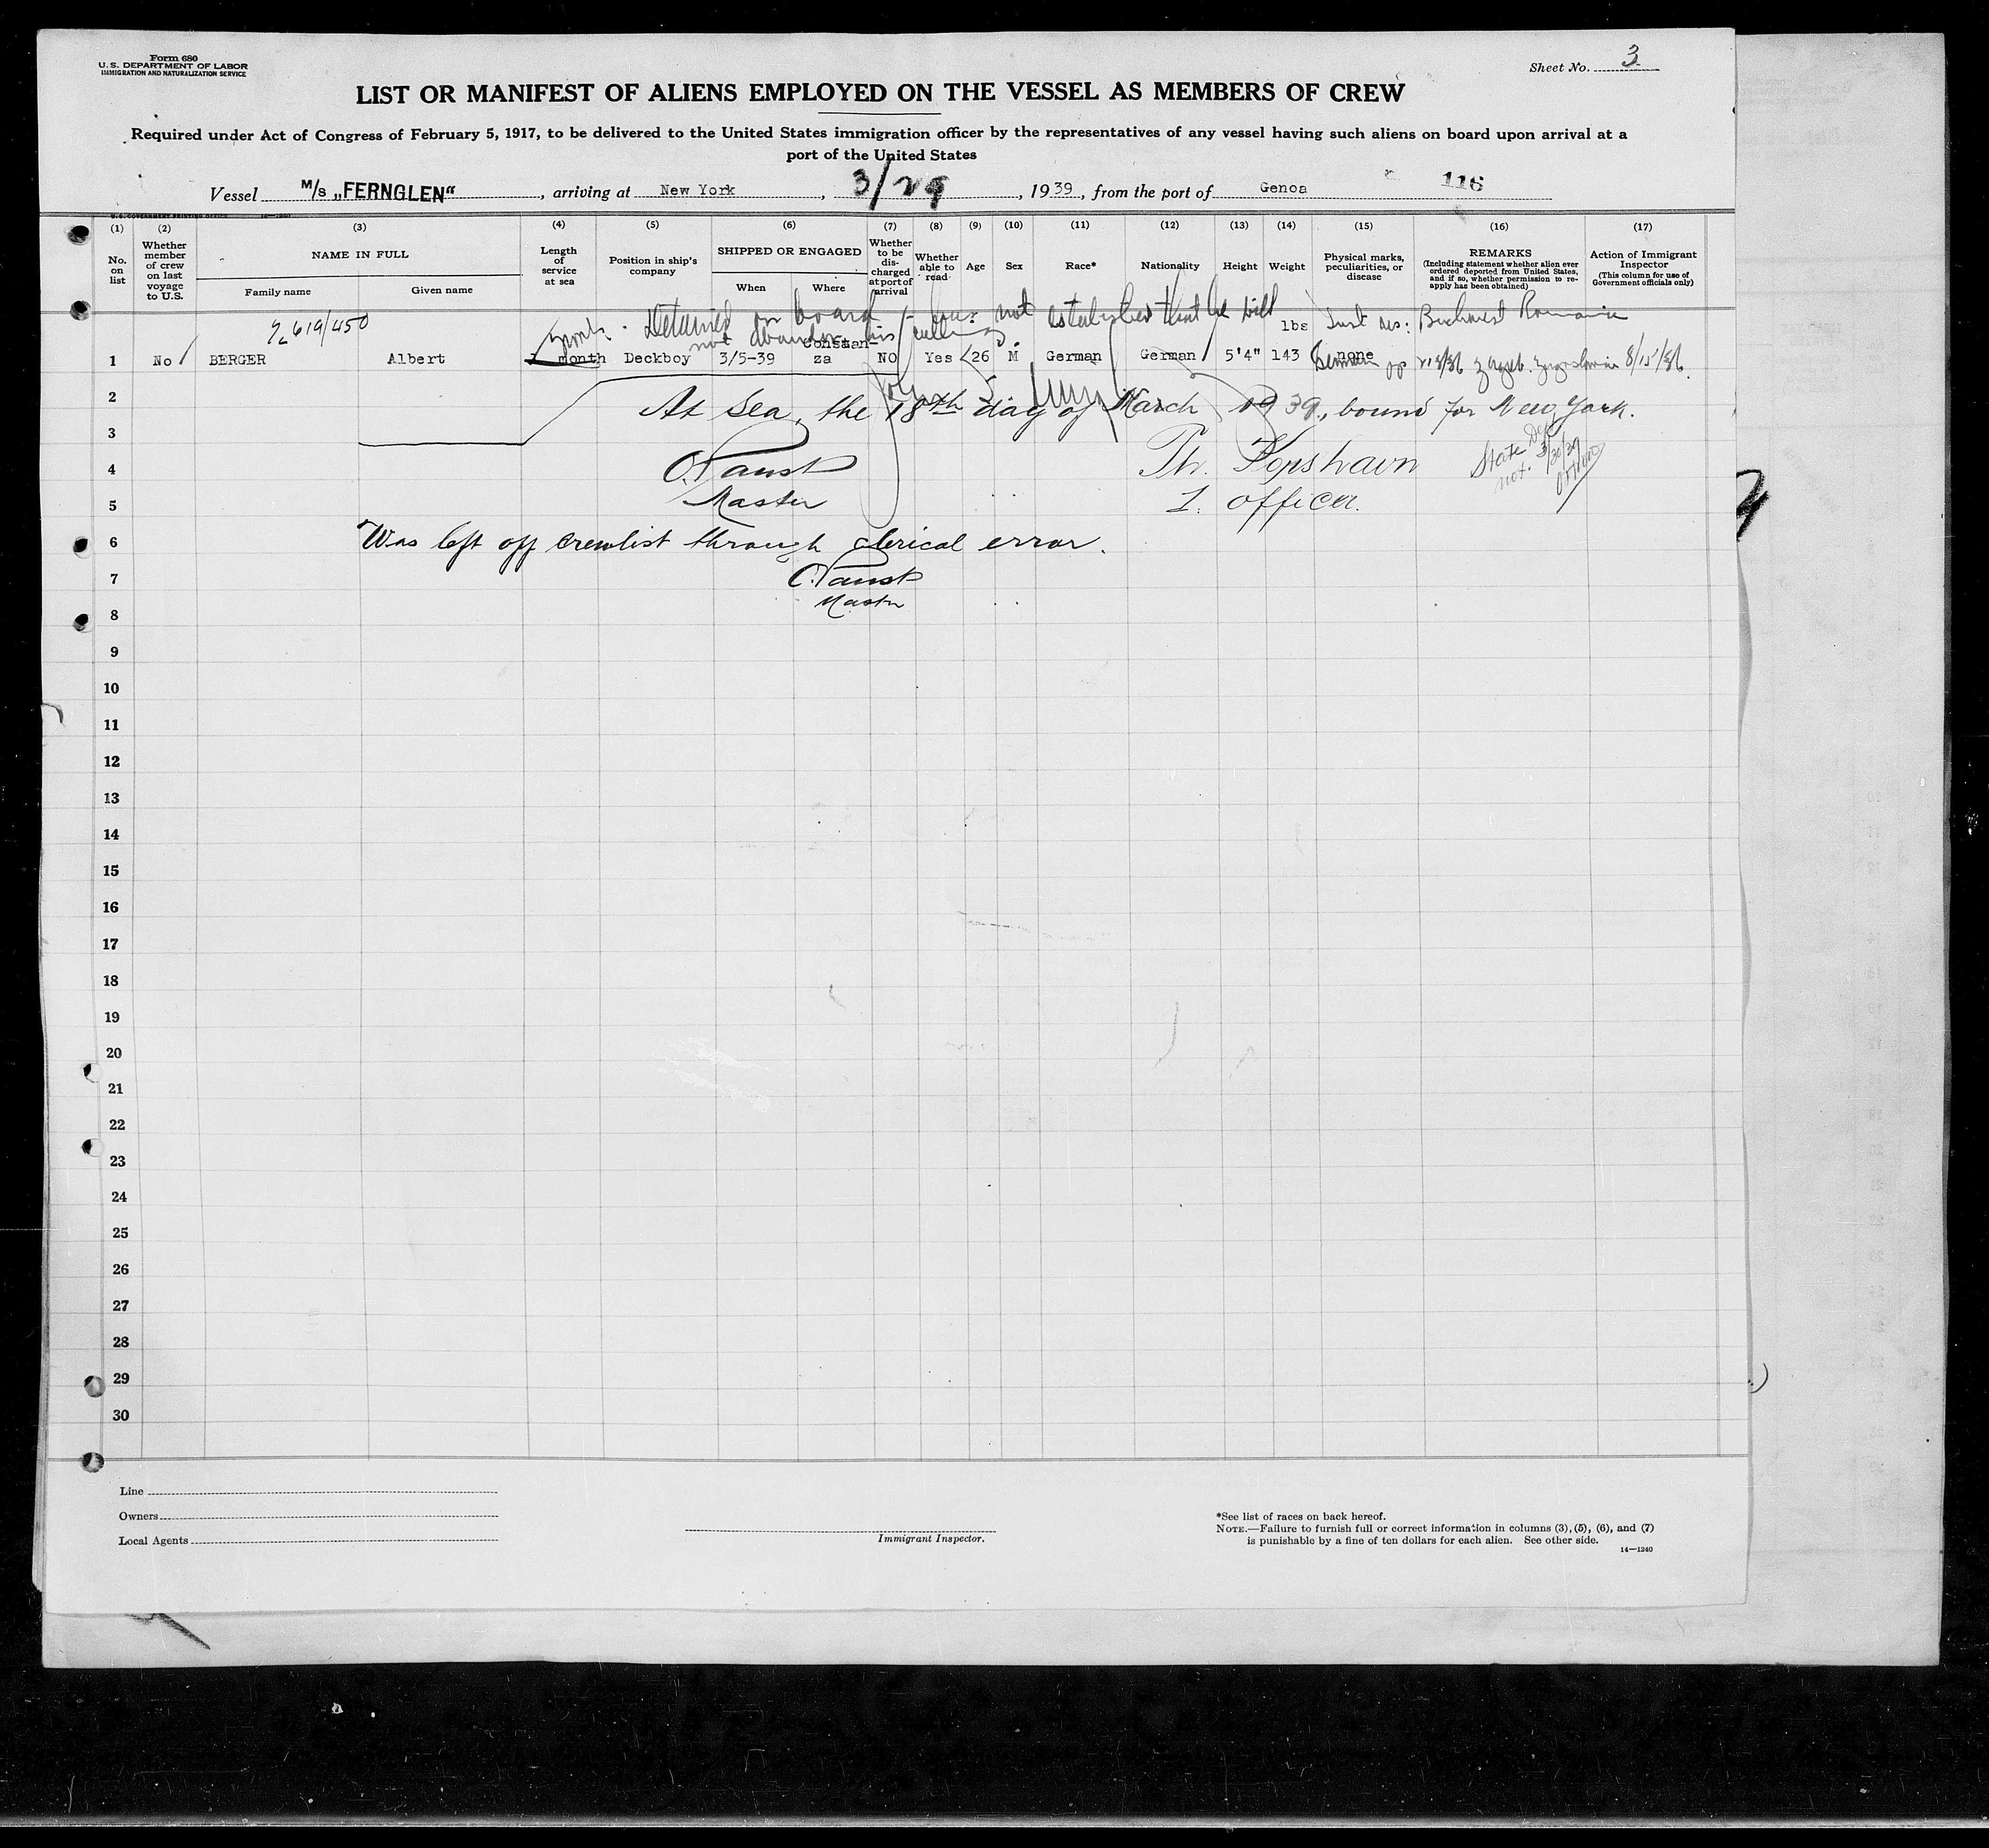 Form 680
U. S. DEPARTMENT OF LABOR
IMMIGRATION AND NATURALIZATION SERVICE
Sheet No. 3
LIST OR MANIFEST OF ALIENS EMPLOYED ON THE VESSEL AS MEMBERS OF CREW
Required under Act of Congress of February 5, 1917, to be delivered to the United States immigration officer by the representatives of any vessel having such aliens on board upon arrival at a
port of the United States
Vessel M/s „FERNGLEN“, arriving at New York, 3/29, 1939, from the port of Genoa 116
(1) (2) (3) (4) (5) (6) (7) (8) (9) (10) (11) (12) (13) (14) (15) (16) (17)
No. on list
Whether member of crew on last voyage to U.S.
NAME IN FULL
Family name
Given name
Length of service at sea
Position in ship's company
SHIPPED OR ENGAGED
When
Where
Whether to be discharged at port of arrival
Whether able to read
Age
Sex
Race*
Nationality
Height
Weight
Physical marks, peculiarities, or disease
REMARKS
(Including statement whether alien ever ordered deported from United States, and if so, whether permission to reapply has been obtained)
Action of Immigrant Inspector
(This column for use of Government officials only)
Detained on board not established that he will
not abandon his calling
Last res: Bucharest Romania
lbs
1 No BERGER Albert month Deckboy 3/5-39 Constanza NO Yes 26 M German German 5'4" 143 none
German Yugoslavia 8/15/36
2
At Sea, the 18th day of March 1939, bound for New York.
3
State Dep
not. 3/30/39
4
Master
5
1. Officer.
6
Was left off crewlist through clerical error.
7
Master
8
9
10
11
12
13
14
15
16
17
18
19
20
21
22
23
24
25
26
27
28
29
30
Line
Owners
Local Agents
Immigrant Inspector.
*See list of races on back hereof.
NOTE.—Failure to furnish full or correct information in columns (3), (5), (6), and (7)
is punishable by a fine of ten dollars for each alien. See other side.
14—1240